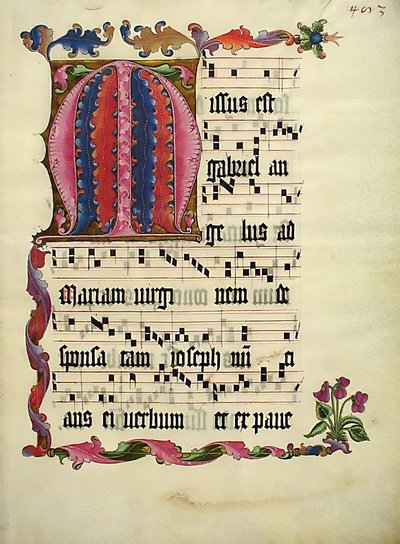 Missus est
gabriel an
ge lus ad
Mariam uirgi nem de
sponsa tam ioseph nũ ci
ans ei uerbum et ex paue